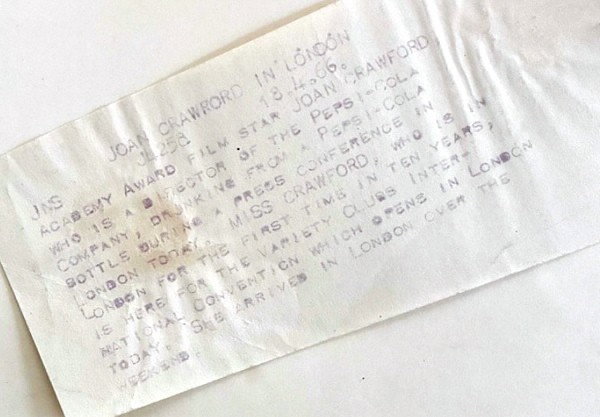 JOAN CRAWRORD IN LONDON
JL258 18.4.66.
JNS
ACADEMY AWARD FILM STAR JOAN CRAWFORD,
WHO IS A DIRECTOR OF THE PEPSI-COLA
COMPANY, DRINKING FROM A PEPSI-COLA
BOTTLE DURING A PRESS CONFERENCE IN
LONDON TODAY. MISS CRAWFORD, WHO IS IN
LONDON FOR THE FIRST TIME IN TEN YEARS,
IS HERE FOR THE VARIETY CLUBS INTER-
NATIONAL CONVENTION WHICH OPENS IN LONDON
TODAY. SHE ARRIVED IN LONDON OVER THE
WEEKEND.